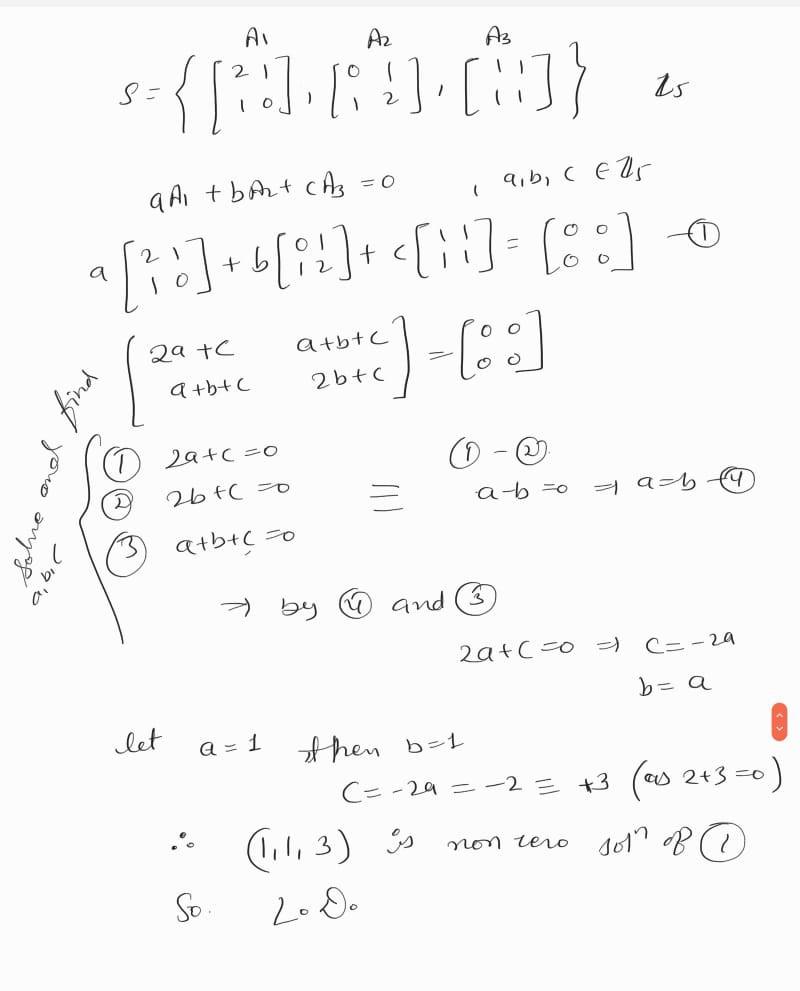 A1 A2 A3
S = { [ 2 1 1 0 ] , [ 0 1 1 2 ] , [ 1 1 1 1 ] } Z5
aA1 + bA2 + cA3 = 0 , a, b, c ∈ Z5
a [ 2 1 1 0 ] + b [ 0 1 1 2 ] + c [ 1 1 1 1 ] = [ 0 0 0 0 ] — ①
[ 2a + c a+b+c
a+b+c 2b+c ] = [ 0 0 0 0 ]
Solve and find
a, b, c
① 2a+c=0
② 2b+c=0
③ a+b+c=0
≡
① - ②
a-b=0 ⇒ a=b —④
⇒ by ④ and ③
2a+c=0 ⇒ c=-2a
b= a
let a = 1 then b=1
c= -2a = -2 ≡ +3 (as 2+3=0)
∴ (1, 1, 3) is non zero solⁿ of ①
So. L.D.